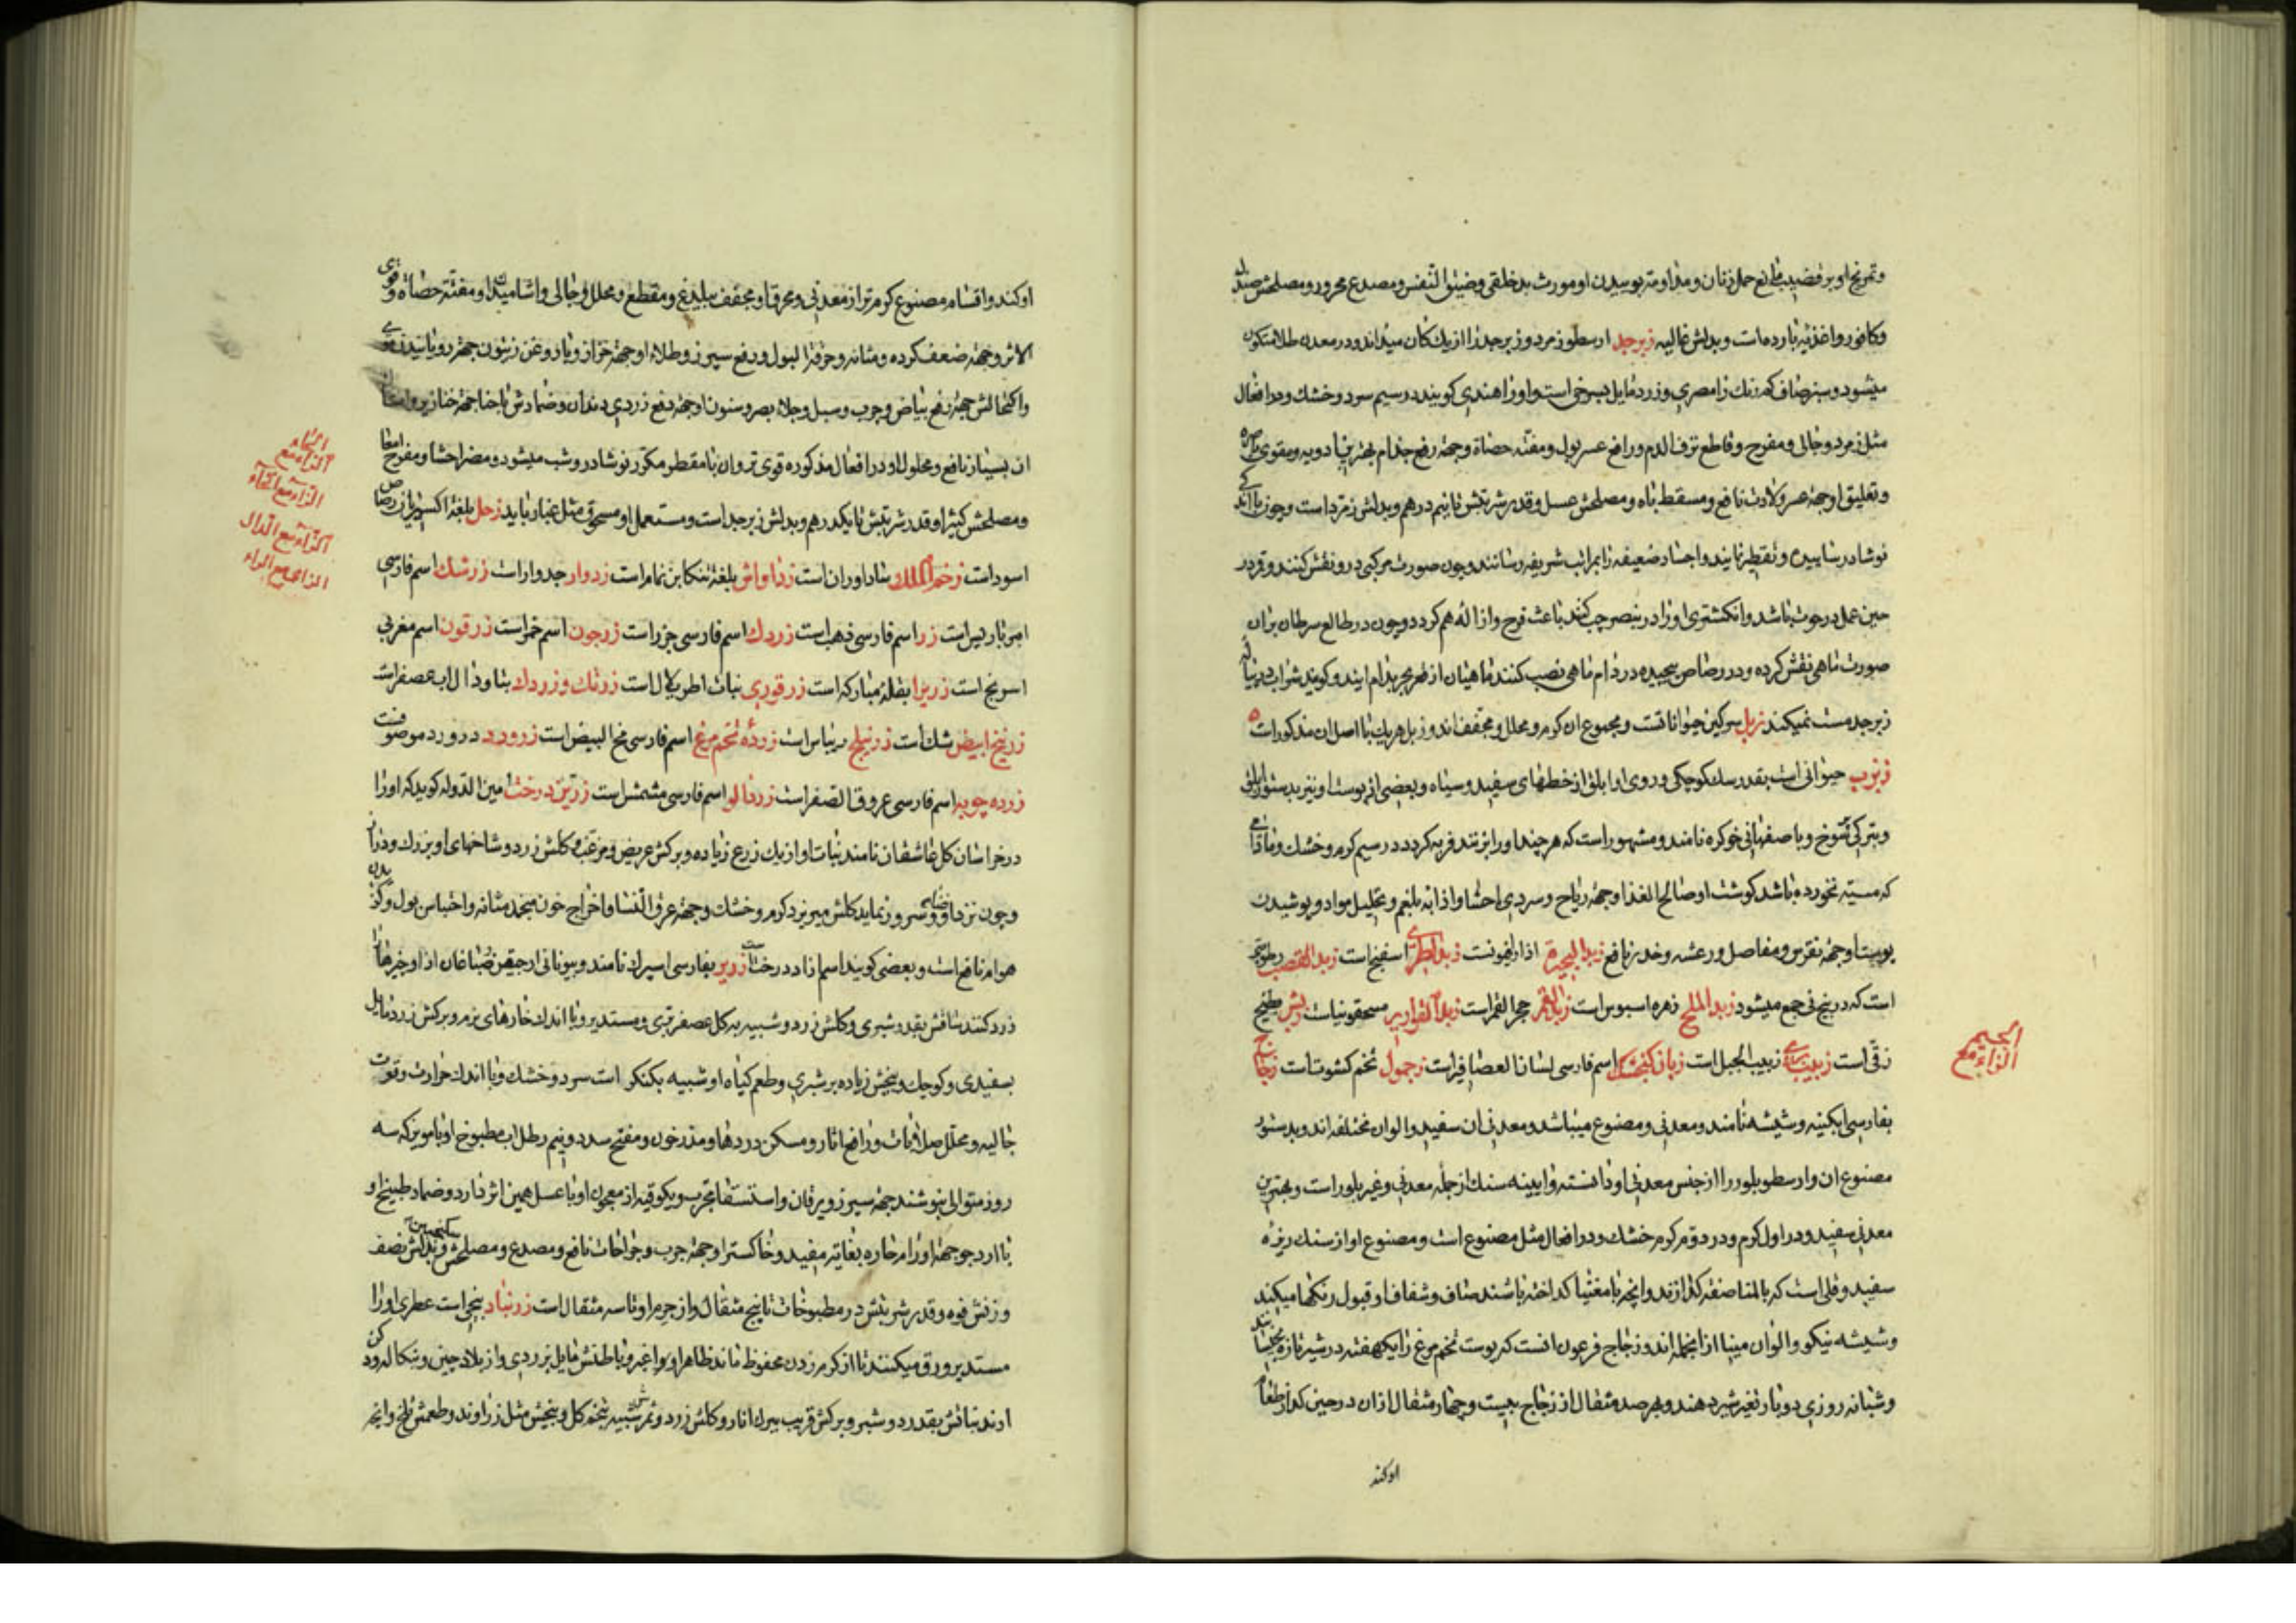 وتمریخ او بر قضیب مانع حمل زنان ومداومت بوسیدن او مورث بدخلقی وضیق النفس ومصدع محرور ومصلحش صندل
وکافور واغذیه بارده است وبدلش غالیه زبرجد ارسطو زمرد وزبرجد را از یك کان میداند ودر معدن طلا متکون
میشود وسبز صاف کم رنك را مصری وزرد مایل بسرخی است واورا هندی کویند در سیم سرد وخشك ودر افعال
مثل زمرد وجالی ومفرح وقاطع نزف الدم ورافع عسر بول ومفتت حصاة وجهة رفع جذام بهترین ادویه ومقوی باصره
وتعلیق او جهة عسر ولادت نافع ومسقط باه ومصلحش عسل وقدر شربتش تا نیم درهم وبدلش زمرد است وچون با اندکی
نوشادر سائیده وتقطیر نمایند واجساد ضعیفه را بمراتب شریفه رسانند وچون صورت مرکبی در و نقش کنند وقمر در
حین عمل در حوت باشد وانکشتری اورا در بنصر چپ کنند باعث فرح وازاله هم کردد وچون در طالع سرطان بران
صورت ماهی نقش کرده ودر رصاص پیچیده در دام ماهی نصب کنند ماهیان از طرف بحر بدام ایند وکویند شراب در پیاله
زبرجد مست نمیکند زبل سرکین حیوانات است ومجموع ان کرم ومحلل ومجفف اند وزبل هریك با اصل ان مذکور است
زبزب حیوانی است بقدر سك کوچکی وروی او ابلق از خطهای سفید وسیاه وبعضی از پوست او نیز بدستور ابلق
وبترکی توسوخ وباصفهانی خوکره نامند ومشهور است که هرچند اورا بزنند فربه کردد در سیم کرم وخشك ومادامی
که میته نخورده باشد کوشت او صالح الغذا وجهة ریاح وسردی احشا واذابه بلغم وتحلیل مواد وپوشیدن
پوست او جهة نقرس ومفاصل ورعشه وخدر نافع زبد البحیرة اذارقیون است زبد البحر اسفنج است زبد القصب رطوبتی
است که در بیخ نی جمع میشود زبد الملح زهره اسیوس است زبد القمر حجر القمر است زبد القواریر مسحقونیا است زبش بطیخ
زقی است زبیب بری زبیب الجبل است زبان کنجشك اسم فارسی لسان العصافیر است زجمول تخم کشوث است زجاج
بفارسی ابکینه وشیشه نامند ومعدنی ومصنوع میباشد ومعدنی ان سفید والوان مختلفه اند وبدستور
مصنوع ان وارسطو بلور را از جنس معدنی او دانسته وابیینه سنك از جمله معدنی وغیر بلور است وبهترین
معدنی سفید ودر اول کرم ودر دوم کرم خشك ودر افعال مثل مصنوع است ومصنوع او از سنك ریزه
سفید وقلی است که بالمناصفه کدازند وانچه با مغنیسا کداخته باشند صاف وشفاف اوقبول رنکها میکند
وشیشه نیکو والوان مینا از انجمله اند وزجاج فرعون انست که پوست تخم مرغ را یکهفته در شیر تازه بخیسانند
وشبانه روزی دو بار تغیر شیر دهند وبر صد مثقال از زجاج بیست وچهار مثقال ازان در حین کداز طعام
او کند
الزاء مع الجیم
او کند واقسام مصنوع کرم تر از معدنی ومحرق او مجفف بیلذغ ومقطع ومحلل وجالی واشامیدن او مفتت حصاة وقوی
الاثر وجهة ضعف کرده ومثانه وحرقة البول ورفع سپرز وطلاء او جهة حزاز وبا روغن زیتون جهة رویانیدن موی
واکتحالش جهة رفع بیاض وجرب وسبل وجلاء بصر وسنون او جهة دفع زردی دندان وضمادش با حنا جهة خنازیر
ان بسیار نافع ومحلول او در افعال مذکوره قوی تر وان با مقطر مکرر نوشادر وشب میشود ومضر احشا ومفرح امعا
ومصلحش کثیرا وقدر شربتش تا یکدرهم وبدلش زبرجد است ومستعمل او مسحوق مثل غبار باید زحل بلغة اکسیریان رصاص
اسود است زخم الملك ساداوران است زداواش بلغة تنکابن نمام است زدوار جدوار است زرشك اسم فارسی
امبرباریس است زر اسم فارسی ذهب است زردك اسم فارسی جزر است زرجون اسم خمر است زرقون اسم مغربی
اسرنج است زریرا بقلة مبارکه است زرقوری نبات اطریلال است زرنك وزردك بتا وذال اب عصفر است
زرنیخ ابیض شك است زرنیلج ریباس است زرده تخم مرغ اسم فارسی مح البیض است زرورد در ورد موصوفست
زرده چوبه اسم فارسی عروق الصفر است زردالو اسم فارسی مشمش است زرین درخت امین الدوله کوید که اورا
در خراسان کل عاشقان نامند نبات او از یك زرع زیاده وبرکش عریض ومزغب وکلش زرد وشاخهای او بزرك ودراز
وچون نزد او سرود نماید کلش میریزد کرم وخشك وجهة عرق النسا واخراج خون منجمد مثانه واحتباس بول وکزیدن
هوام نافع است وبعضی کویند اسم ازاد درخت است زریر بفارسی اسپرك نامند وبیونانی ارجیقن صباغان از او چیزها را
زرد کنند ساقش بقدر شبری وکلش زرد وشبیه به کل عصفر بری ومستدیر وبا اندك خارهای نرم وبرکش زرد مایل
بسفیدی وکوچك وبیخش زیاده بر شبری وطعم کیاه او شبیه بکنکر است سرد وخشك وبا اندك حرارت وقوت
جالیه ومحلل صلابات ورافع اثار ومسکن دردها ومدر خون ومفتح سدد ونیم رطل اب مطبوخ او با مویز که سه
روز متوالی بنوشند جهة سپرز ویرقان واستسقا مجرب ویکوقیه از معجون او با عسل همین اثر دارد وضماد طبیخ او
با ارد جو جهة اورام حاره بغایت مفید وخاکستر او جهة جرب وجراحات نافع ومصدع ومصلحش سکنجبین وبدلش نصف
وزنش فوه وقدر شربتش در مطبوخات تا پنج مثقال واز جرم او تا سه مثقال است زرنباد بیخی است عطری اورا
مستدیر ورق میکنند تا از کرم زدن محفوظ ماند ظاهر او اغبر وباطنش مایل بزردی واز بلاد چین وبنکاله ودکن
ارند نباتش بقدر دو شبر وبرکش قریب ببرك انار وکلش زرد وثمرش شبیه بتخم کل وبیخش مثل زراوند وطعمش تلخ وانچه
الزاء مع الحاء
الزاء مع الخاء
الزاء مع الدال
الزاء مع الراء